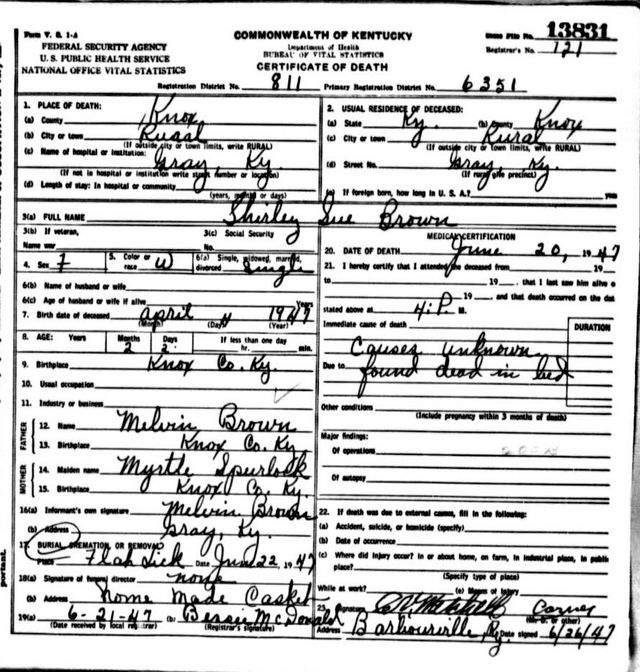 Form V. S. 1-A
FEDERAL SECURITY AGENCY
U. S. PUBLIC HEALTH SERVICE
NATIONAL OFFICE VITAL STATISTICS
COMMONWEALTH OF KENTUCKY
Department of Health
BUREAU OF VITAL STATISTICS
CERTIFICATE OF DEATH
File No. 13831
Registrar's No. 121
Registration District No. 811 Primary Registration District No. 6351
1. PLACE OF DEATH:
(a) County Knox
(b) City or town Rural
(If outside city or town limits, write RURAL)
(c) Name of hospital or institution: Gray, Ky
(If not in hospital or institution write street number or location)
(d) Length of stay: In hospital or community
(years, months or days)
2. USUAL RESIDENCE OF DECEASED:
(a) State Ky. (b) County Knox
(c) City or town Rural
(If outside city or town limits, write RURAL)
(d) Street No. Gray, Ky.
(If rural give precinct)
(e) If foreign born, how long in U. S. A.? years
3(a) FULL NAME Shirley Sue Brown
3(b) If veteran, Name war 3(c) Social Security No.
4. Sex F 5. Color or race W 6(a) Single, widowed, married, divorced Single
6(b) Name of husband or wife
6(c) Age of husband or wife if alive Years
7. Birth date of deceased April 1947
(Month) (Day) (Year)
8. AGE: Years Months 2 Days 2 If less than one day hr. min.
9. Birthplace Knox Co. Ky.
10. Usual occupation
11. Industry or business
FATHER
12. Name Melvin Brown
13. Birthplace Knox Co. Ky.
MOTHER
14. Maiden name Myrtle Spurlock
15. Birthplace Knox Co. Ky.
16(a) Informant's own signature Melvin Brown
(b) Address Gray, Ky.
17. BURIAL, CREMATION, OR REMOVAL
Place Flat Lick Date Jun 22, 1947
18(a) Signature of funeral director none
(b) Address Home Made Casket
19(a) 6-21-47 (b) Bessie McDonald
(Date received by local registrar) (Registrar's signature)
MEDICAL CERTIFICATION
20. DATE OF DEATH June 20, 1947
21. I hereby certify that I attended the deceased from 19
to 19 , that I last saw him alive o
19 , and that death occurred on the dat
stated above at 4:P. M.
Immediate cause of death
DURATION
Causes unknown
Due to found dead in bed
Other conditions
(Include pregnancy within 3 months of death)
Major findings:
Of operations
Of autopsy
22. If death was due to external causes, fill in the following:
(a) Accident, suicide, or homicide (specify)
(b) Date of occurrence
(c) Where did injury occur? In or about home, on farm, in industrial place, in public
place?
(Specify type of place)
While at work? (e) Means of Injury
23. Signature
(M.D. or other)
Address Barbourville, Ky Date signed 6/26/47
portant.